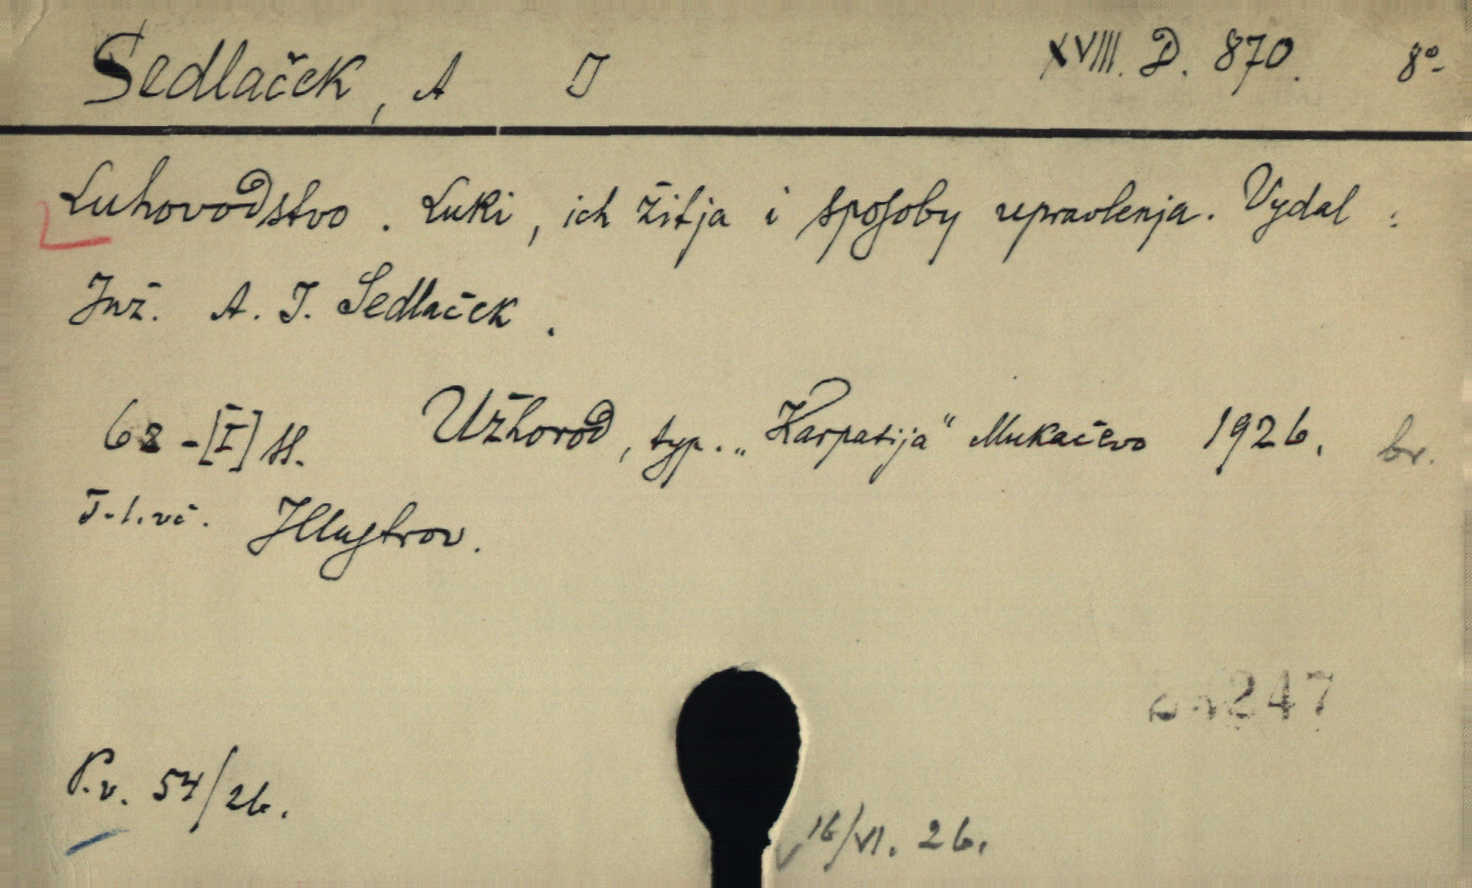 Sedlaček, A J XVIII. D. 870. 8°-
Luhovodstvo. Luki, ich žitja i sposoby upravlenja. Vydal:
Inž. A. J. Sedlaček.
68-[I] ss. Užhorod, typ. „Karpatija“ Mukačevo 1926. br.
Illustrov.
247
P.v. 54/26.
16/VI. 26.